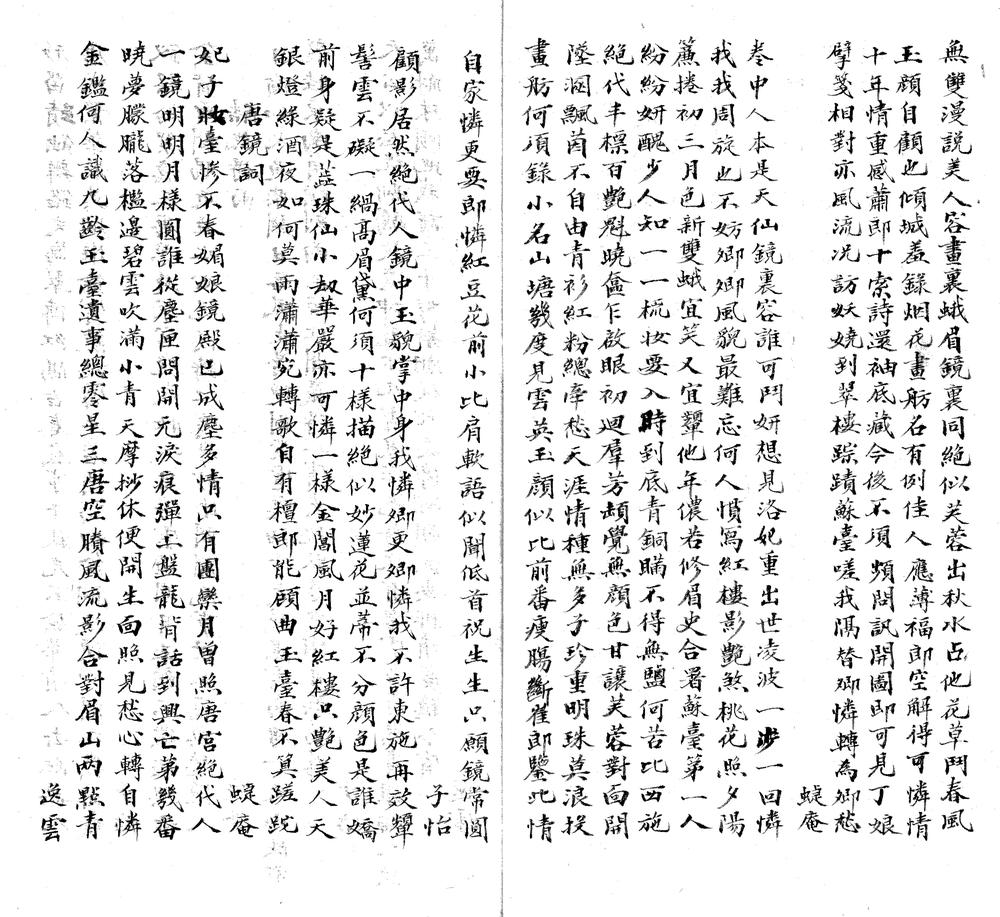 無雙漫說美人容畫裏蛾眉鏡裏同絕似芙蓉出秋水占他花草鬥春風
玉顏自顧也傾城羞錄烟花畫舫名有例佳人應薄福郎空解得可憐情
十年情重感蕭郎十索詩還袖底藏今後不須頻問訊開圖即可見丁娘
擘箋相對亦風流况訪妖嬈到翠樓踪蹟蘇臺嗟我隔替卿憐轉為卿愁
䗓庵
卷中人本是天仙鏡裏容誰可鬥妍想見洛妃重出世凌波一步一回憐
我我周旋也不妨卿卿風貌最難忘何人慣寫紅樓影艷煞桃花照夕陽
簾捲初三月色新雙蛾宜笑又宜顰他年儂若修眉史合署蘇臺第一人
紛紛妍醜少人知一一梳妝要入時到底青銅瞞不得無鹽何苦比西施
絕代丰標百艷魁曉奩乍啟眼初迴羣芳頓覺無顏色甘讓芙蓉對面開
墜溷飄茵不自由青衫紅粉總牽愁天涯情種無多子珍重明珠莫浪投
畫舫何須錄小名山塘幾度見雲英玉顏似比前番瘦腸斷崔郎鑒此情
子怡
自家憐更要郎憐紅豆花前小比肩軟語似聞低首祝生生只願鏡常圓
顧影居然絕代人鏡中玉貌掌中身我憐卿更卿憐我不許東施再效顰
髻雲不礙一緺高眉黛何須十樣描絕似妙蓮花並蒂不分顏色是誰嬌
前身疑是蕊珠仙小劫華嚴亦可憐一樣金閶風月好紅樓只艷美人天
銀燈綠酒夜如何莫雨瀟瀟宛轉歌自有檀郎能顧曲玉臺春不算蹉跎
䗓庵
唐鏡詞
妃子妝臺慘不春媚娘鏡殿已成塵多情只有團欒月曾照唐宮絕代人
一鏡明明月樣圓誰從塵匣問開元淚痕彈上盤龍背話到興亡第幾番
曉夢朦朧落檻邊碧雲吹滿小青天摩挲休便開生面照見愁心轉自憐
金鑑何人識九齡玉臺遺事總零星三唐空賸風流影合對眉山兩點青
逸雲